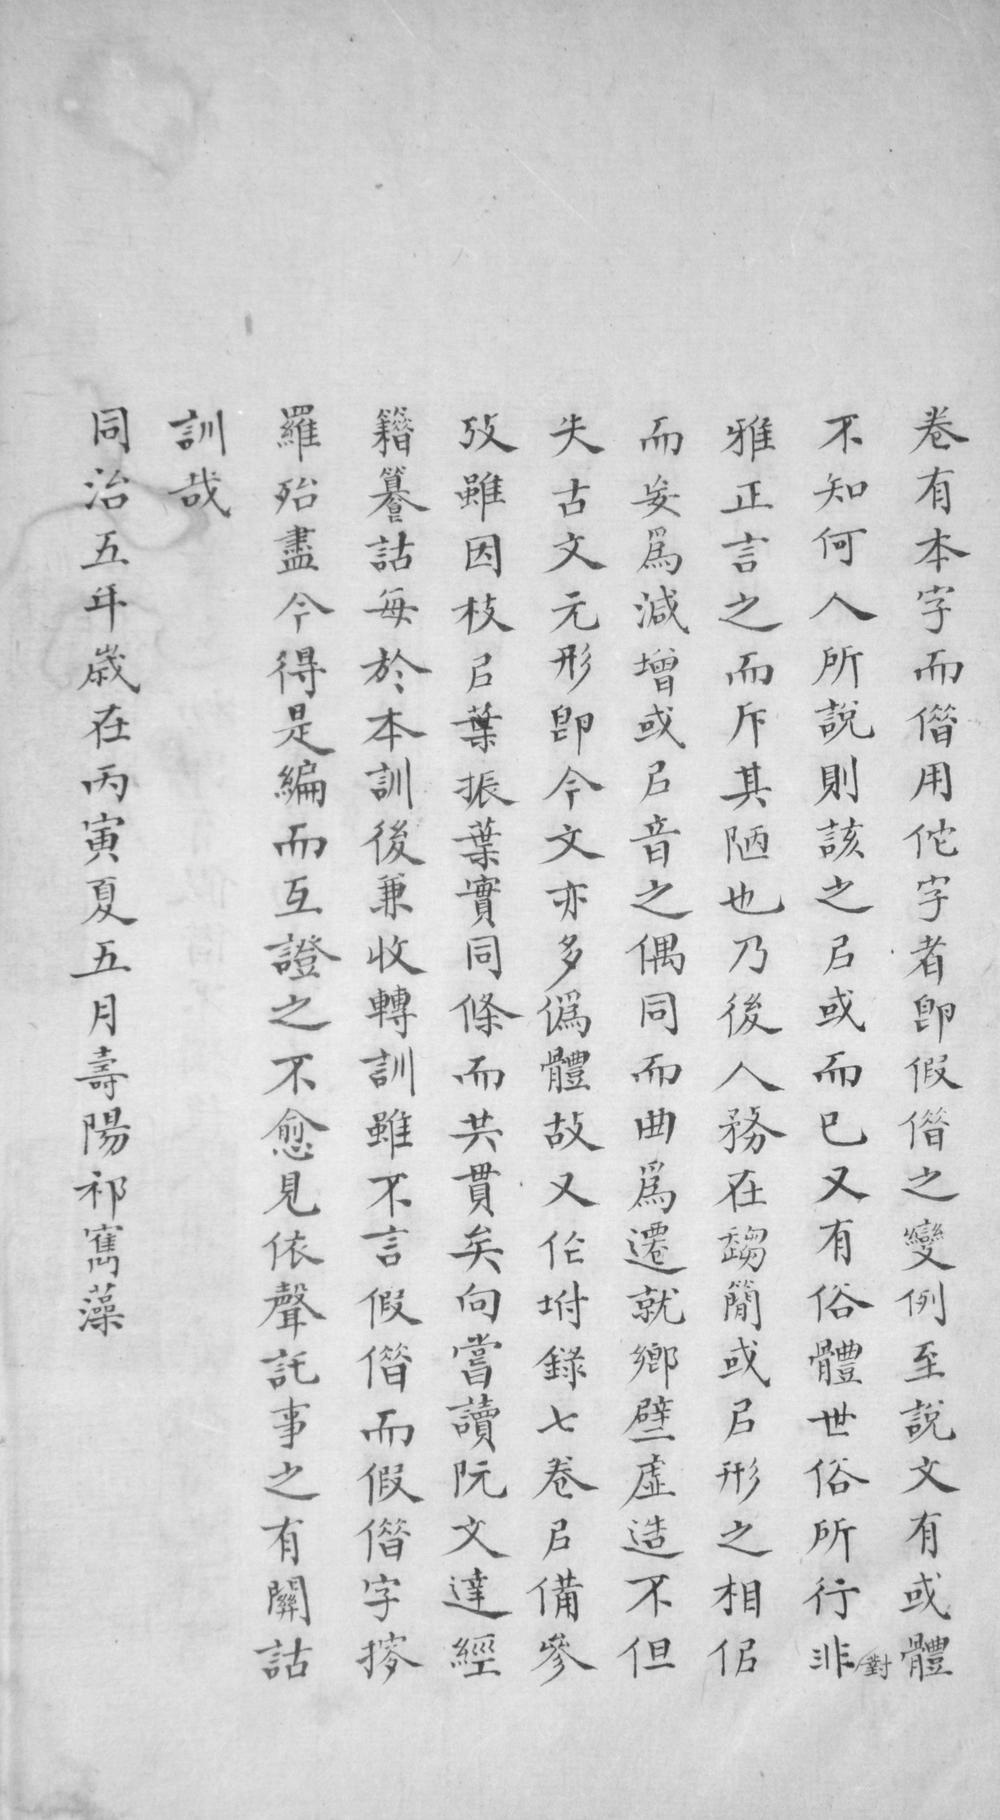 卷有本字而僭用佗字者卽假僭之變例至說文有或體
不知何人所說則該之㠯或而已又有俗體世俗所行非對
雅正言之而斥其陋也乃後人務在趨簡或㠯形之相佀
而妄爲減增或㠯音之偶同而曲爲遷就鄉壁虛造不但
失古文元形卽今文亦多僞體故又作坿錄七卷㠯備參
攷雖因枝㠯葉振葉實同條而共貫矣向嘗讀阮文達經
籍籑詁每於本訓後兼收轉訓雖不言假僭而假僭字搜
羅殆盡今得是編而互證之不愈見依聲託事之有關詁
訓哉
同治五年歲在丙寅夏五月壽陽祁寯藻